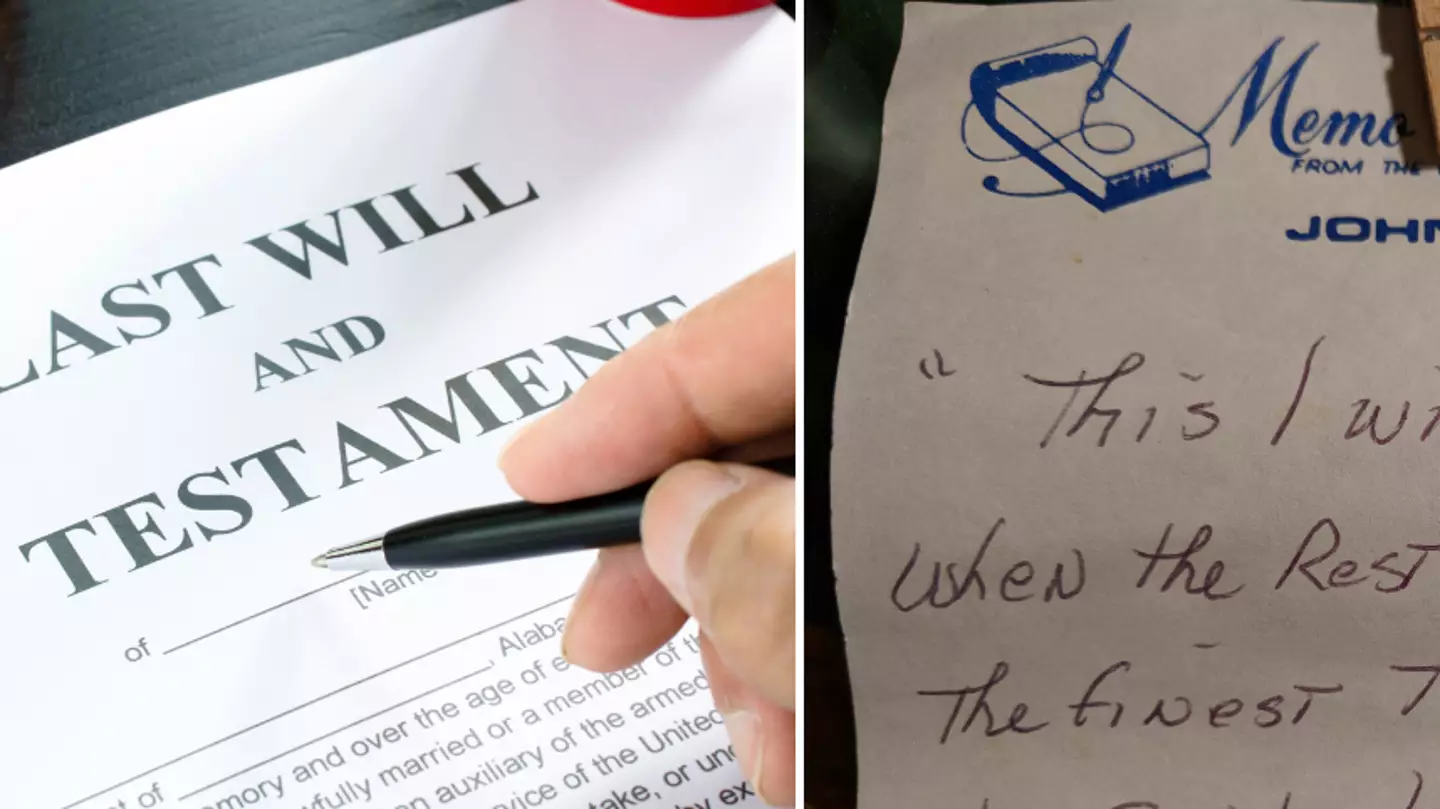 LAST WILL
AND
TESTAMENT
[Name
of
, Alaba
memory and over the age of e
fully married or a member of t
an auxiliary of the armed
vice of the United
take, or un
by ex
Memo
FROM THE
JOHN
" This I wi
when the Rest
The finest T